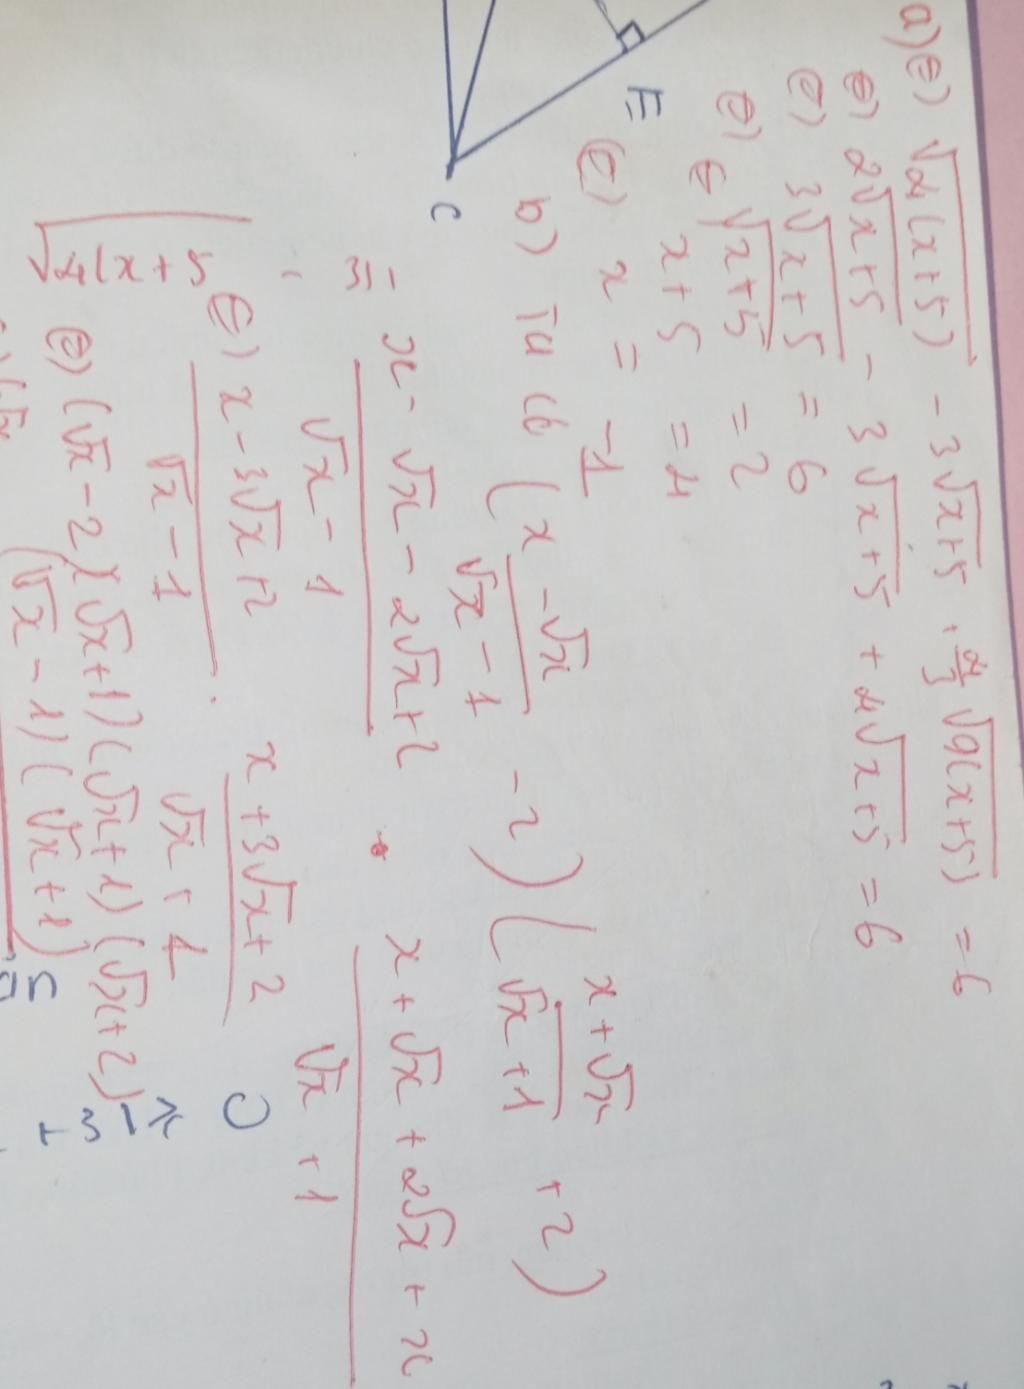 a) (=) √4(x+5) - 3√x+5 + 4/3 √9(x+5) = 6
(=) 2√x+5 - 3√x+5 + 4√x+5 = 6
(=) 3√x+5 = 6
(=) √x+5 = 2
x+5 = 4
(=) x = -1
b) Ta có (x-√x / √x-1 - 2) (x+√x / √x+1 + 2)
= x-√x-2√x+2 / √x-1 · x+√x+2√x+2 / √x+1
(=) x-3√x+2 / √x-1 · x+3√x+2 / √x+1
(=) (√x-2)(√x+1)(√x+1)(√x+2) / (√x-1)(√x+1)
√4(x+5
E
C